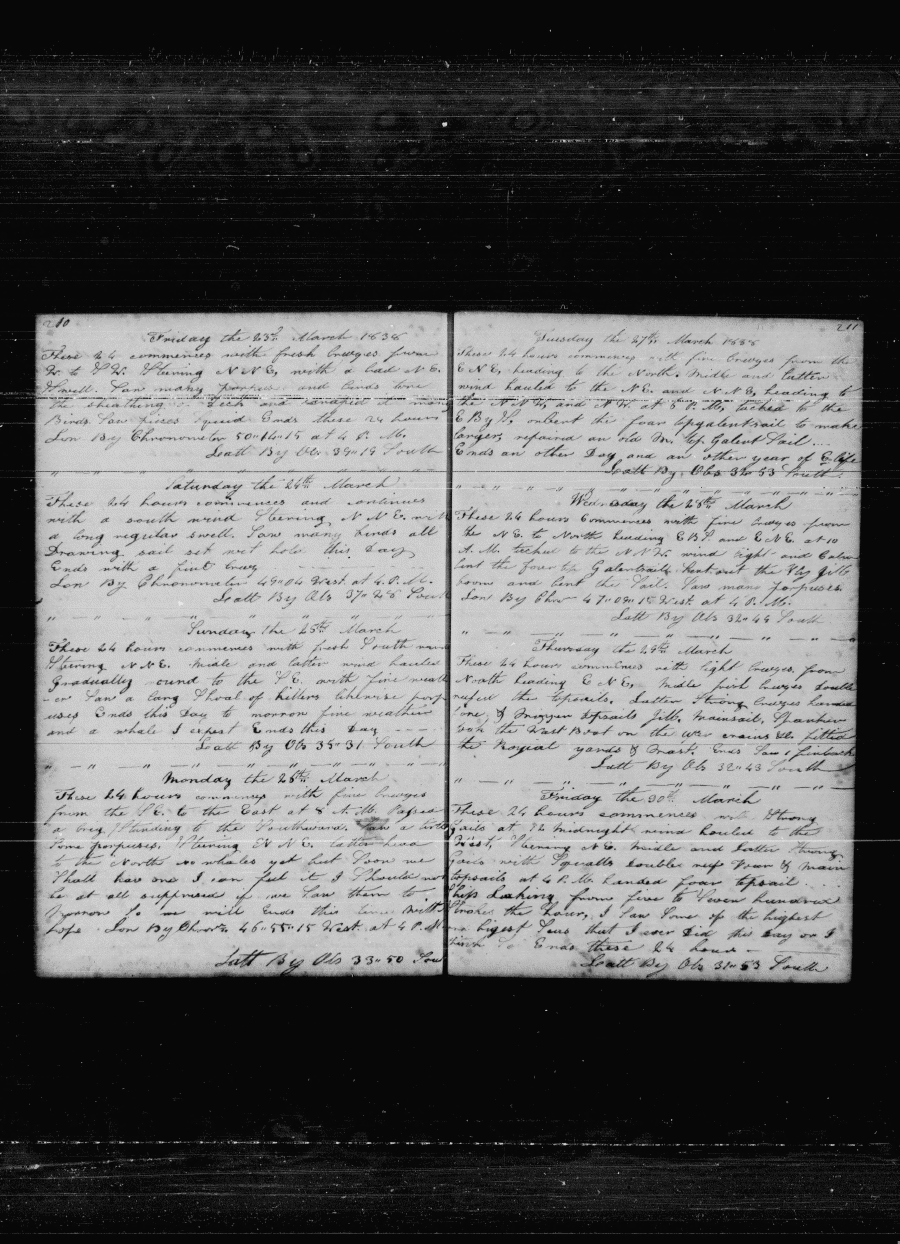 210
Friday the 23th March 1838
These 24 commences with fresh breezes from
W. to S.W. Stering N N E, with a bad N.E.
Swell. Saw many porpuses and birds
the sheathing
Birds Saw pieces squid Ends these 24 hours
Lon By Chronometer 50"14"15 at 4 P. M.
Latt By Obs 39"19 South
Saturday the 24th March
These 24 hours commences and continues
with a south wind Stering N N E. with
a long regular swell. Saw many birds all
Drawing sail set
Ends with a
Lon By Chronometer 49"04 West. at 4. P. M.
Latt By Obs 37"26 South
Sunday the 25th March
These 24 hours commences with fresh South wind
Stering N N E. Midle and latter wind hauled
gradually round to the S E. with fine weath
-er Saw a larg Shoal of killers likewise porp
uses Ends this Day to morrow fine weather
and a whale I expect Ends this Day
Latt By Obs 35"31 South
Monday the 26th March
These 24 hours commences with fine breezes
from the S.E. to the East at 8 A. M. Passed
a brig Standing to the Southward. Saw a
Some porpuses. Stering N N E. latter
to the North no whales yet but Soon we
Shall have one I can feel it I Should not
be at all supprised if we Saw them to
morrow So we will Ends this time With
hope Lon By Chro 46"55"15 West. at 4 P.M.
Latt By Obs 33"50 Sou
211
Tuesday the 27th March 1838
These 24 hours commences with fine breezes from the
E N E, heading to the North. Midle and latter
wind hauled to the N E. and N N E, heading to
the and N W. at 5 P. M, tacked to the
E By S, onbent the foar topgalentsail to make
larger, repaired an old M. top Galent Sail
Ends an other Day and an other year of
Latt By Obs 32"53 South
Wednesday the 28th March
These 24 hours Commences with fine breezes from
the N E. to North heading E B S and E N E. at 10
A. M. tacked to the N N W. wind light and Calm
bent the foar top Galentsail. the fly Jibb
boom and bent the Sail. Saw many porpuses.
Lon By Chro 47"09"15 West. at 4 P. M.
Latt By Obs 32"44 South
Thursday the 29th March
These 24 hours commences with light breezes, from
North heading E N E, Midle fresh breezes double
reefed the topsails. Latter Strong breezes handed
Jibb. Mainsail, Spanker
took the Wast Boat on the
the Royial yards & mast. Ends Saw 1 finback
Latt By Obs 32"43 South
Friday the 30th March
These 24 hours commences with Strong
Gails at 12 Midnight wind hauled to the
West, Stering N E. Midle and latter Strong
Gails with Squalls double reef Foar & Main
topsails at 4 P. M. handed foar topsail
Ship Leaking from five to Seven hundred
Strokes the hour, I Saw Some of the highest
and bigest Seas that I ever Did the Day
Ends these 24 hours
Latt By Obs 31"53 South